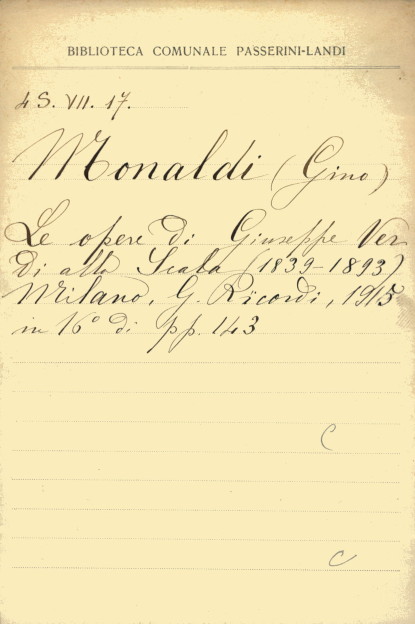 BIBLIOTECA COMUNALE PASSERINI-LANDI
4S. VII. 17.
Monaldi (Gino)
Le opere di Giuseppe Ver
di alla Scala (1839-1893)
Milano, G. Ricordi, 1915
in 16° di pp. 143
C
C